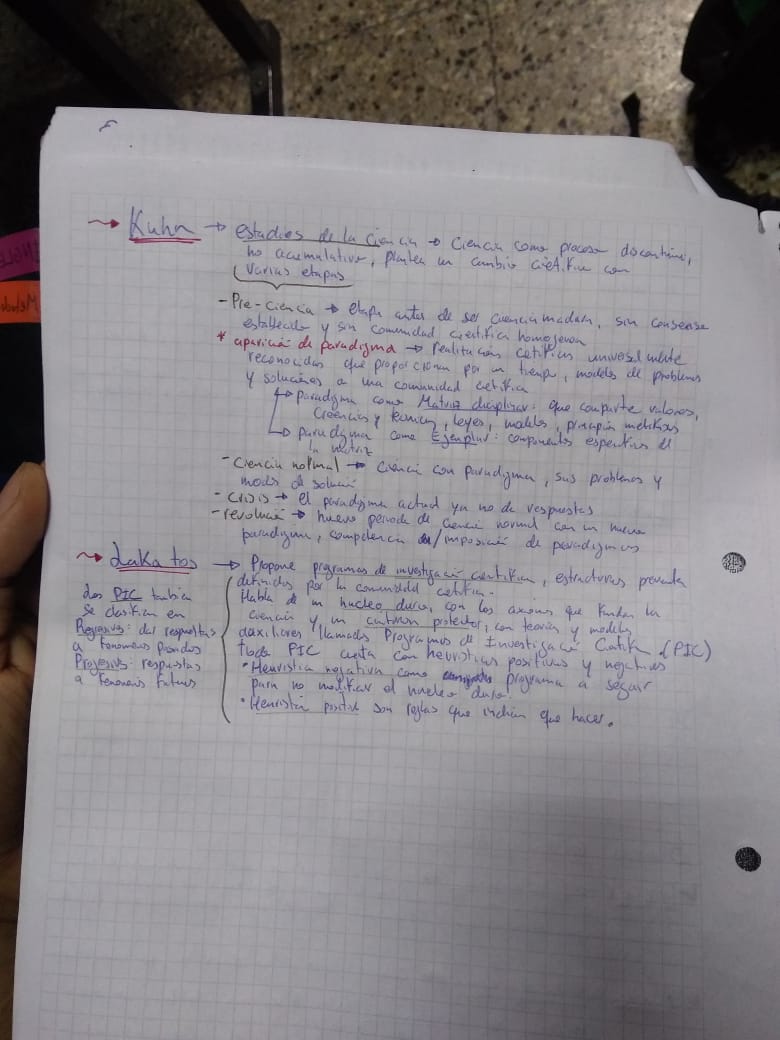 → Kuhn → estadios de la ciencia → Ciencia como proceso discontinuo,
no acumulativo, plantea un cambio científico con
varias etapas
- Pre-ciencia → etapa antes de ser ciencia madura, sin consenso
establecido y sin comunidad científica homogenea
* aparición de paradigma → realizaciones científicas universalmente
reconocidas que proporcionan por un tiempo, modelos de problemas
y soluciones a una comunidad cietifica
→ paradigma como Matriz disciplinar: que comparte valores,
Creencias y tecnicas, leyes, modelos, principios metafísicos
→ paradigma como Ejemplar: componentes especificos de
la matriz
- Ciencia normal → Ciencia con paradigma, sus problemas y
modos de solución
- Crisis → el paradigma actual ya no da respuestas
- revolución → nuevo periodo de ciencia normal con un nuevo
paradigma, competencia /imposición de paradigmas
→ Lakatos → Propone programas de investigación científica, estructuras
definidos por la comunidad científica.
Habla de un nucleo duro, con los axiomas que fundan la
ciencia y un cinturon protector, con teorias y modelos
auxiliares llamados Programas de Investigación Científica (PIC)
Todo PIC cuenta con heuristicas positivas y negativas
• Heuristica negativa como programa a seguir
para no modificar el nucleo duro.
• Heuristica positiva son reglas que indican que hacer.
Los PIC tambien
se clasifican en
Regresivos: dar respuestas
a fenomenos pasados
Progresivos: respuestas
a fenomenos futuros